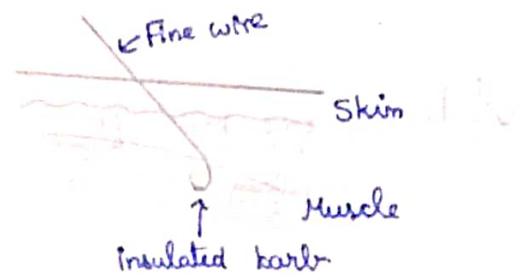 Fine wire
Skin
Muscle
insulated barb